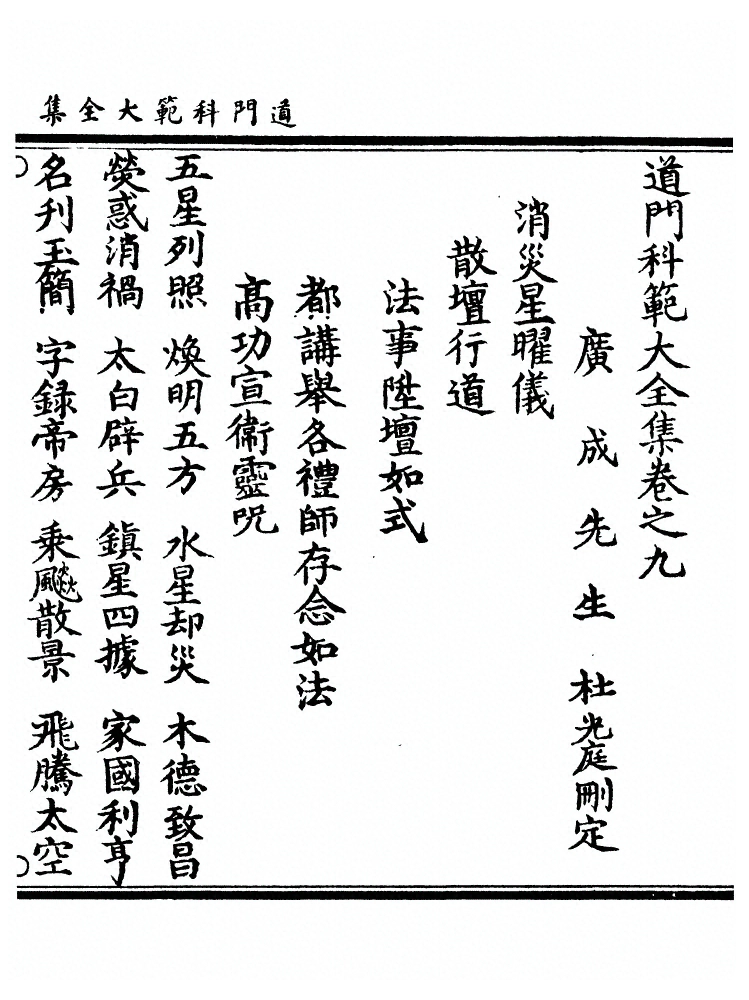 道門科範大全集
道門科範大全集卷之九
廣成先生杜光庭刪定
消災星曜儀
散壇行道
法事陞壇如式
都講舉各禮師存念如法
高功宣衛靈呪
五星列照 煥明五方 水星却災 木德致昌
熒惑消禍 太白辟兵 鎮星四據 家國利亨
名刋玉簡 字録帝房 乘飈散景 飛騰太空